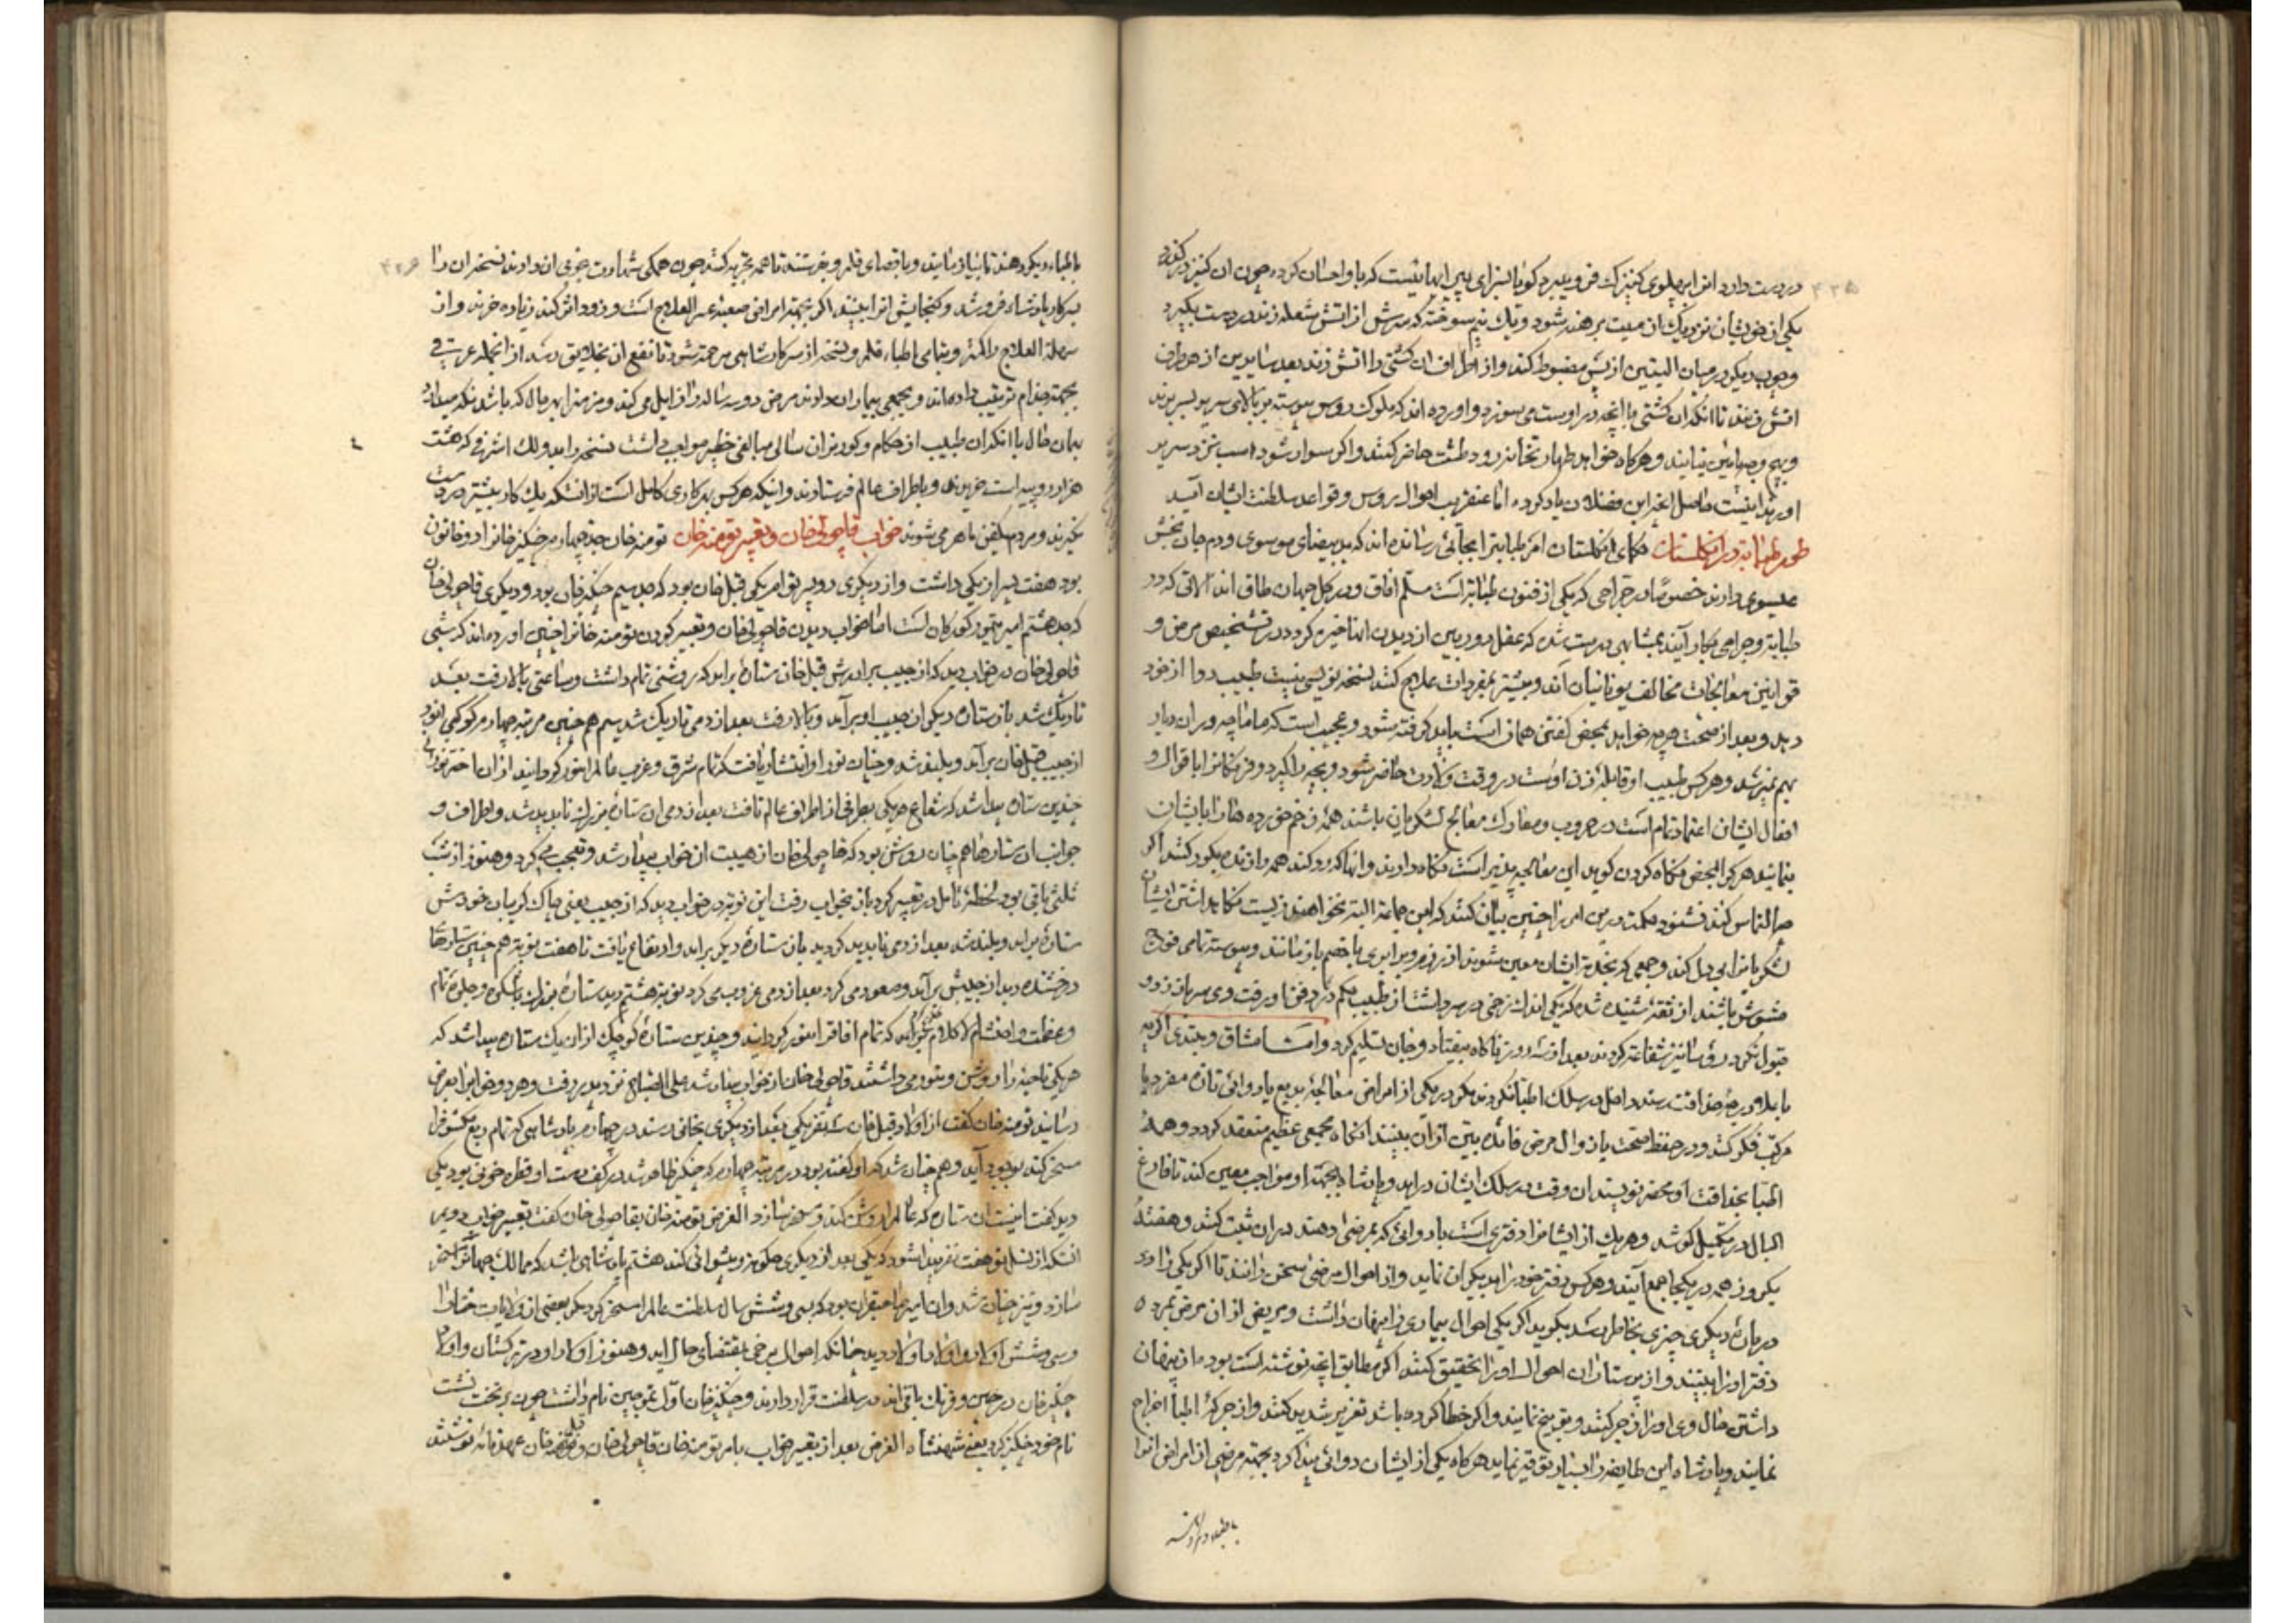 در دست دارد انرا بر پهلوی کنیزک فرو میبرد کویا سزای پیر ایها نیست که با و احسان کرده چون ان کنیز در کذرد
یکی از خویشان نزدیک ان میت برهنه شود و یک نیم سوخته که سرش از اتش شعله زند در دست بکیرد
و چوب دیکر در میان الیتین از پس مضبوط کند و از اطراف ان کشتی را اتش زند بعد سایرین از هر طرف
اتش زنند تا انکه ان کشتی با انچه در اوست می سوزد و اورده اند که ملوک روس پیوسته بر بالای سریر بسر برند
و بهیچ وجه پائین نیایند و هر کاه خواهد طهارت نماید زود طشت حاضر کنند و اکر سوار شود اسب نزد سریر
اورند اینست ما حصل انچه ابن فضلان یاد کرده اما عنقریب احوال روس و قواعد سلطنت ایشان آید
طور طبابة در انکلستان حکمای انکلستان امر طبابترا بجائی رسانده اند که ید بیضای موسوی و دم جان بخش
عیسوی دارند خصوصا در جراحی که یکی از فنون طبابة است مسلم افاق و در کل جهان طاق اند الاتی که در
طبابة و جراحی بکار آید بمثابهٔ درست شده که عقل دوربین از دیدن انها خیره کردد در تشخیص مرض و
قوانین معالجات مخالف یونانیان آند و بیشتر بمفردات علاج کنند نسخه نویسی نیست طبیب دوا از خود
دهد و بعد از صحت هر چه خواهد بمحض کفتن همان است باید کرفته شود و عجیب است که ماماچه در ان دیار
بهم نمیرسد و هر کس طبیب او قابلهٔ زن اوست در وقت ولادت حاضر شود و بچه را کیرد و فرنکانرا باقوال و
افعال ایشان اعتماد تمام است در حروب و معارک معالج لشکریان باشند همه زخم خورده هارا بایشان
بنمایند هر کرا بمحض نکاه کردن کوید این معالجه پذیر است نکاه دارند و انها که رد کند همه را زنده بکور کنند اکر
چه التماس کنند نشنود حکمت در این امر را چنین بیان کنند که این جماعة البته نخواهند زیست نکاهداشتن ایشان
لشکریانرا بی دل کند و جمعی که بخدمة ایشان معین شوند از رزم و برابری با خصم باز مانند و پیوسته تمامی فوج
مشوش باشند از ثقة شنیده شد که یکی اندک زخمی در سر داشت از طبیب حکم در دفن او رفت وی سر باز زد و
قبول نکرد رؤسا نیز شفاعت کردند بعد از سه روز ناکاه بیفتاد و جان تسلیم کرد و امتسا مشاق و مبتدی اکر چه
باعلا درجهٔ حذاقت رسند داخل در سلک اطبا نکردند مکر در یکی از امراض معالجهٔ بدیع یا دوائی تازه مفرد یا
مرکب فکر کنند و در حفظ صحت یا زوال مرض فائدهٔ بین ازان ببینند انکاه مجمعی عظیم منعقد کردد و همهٔ
اطبا بحذاقت او محضر نویسند ان وقت در سلک ایشان در اید و پادشاه بجهة او مواجب معین کند تا فارغ
البال در تکمیل کوشد و هر یک از ایشانرا دفتری است با دوائی که بمرضی دهند دران ثبت کنند و هفتهٔ
یکروز همه در یکجا جمع آیند و هر کس دفتر خود را بدیکران نماید و از احوال مرضی سخن رانند تا اکر یکی را در
در بارهٔ دیکری چیزی بخاطر رسد بکوید اکر یکی احوال بیماری را پنهان داشت و مریض از ان مرض بمرد ه
دفتر اورا ببینند و از پرستاران احوال اورا تحقیق کنند اکر مطابق انچه نوشته است بوده از پنهان
داشتن حال وی اورا زجر کنند و توبیخ نمایند و اکر خطا کرده باشد تعزیر شدید کنند و از جرکهٔ اطبا اخراج
نمایند و پادشاه این طایفه را بسیار توقیر نماید هر کاه یکی از ایشان دوائی پیدا کرد بجهة مرضی از امراض انرا
باطباء دیکر
۴۳۵
باطباء دیکر دهند تا بنیاز مایند و باقصای قلمرو بفرستند تا همه تجربه کنند چون همکی شهادت خوبی ان دادند نسخه ان را
بسرکار پادشاه فروشد و کنجایش انرا ببینند اکر بجهة امراض صعبهٔ عسر العلاج است و زود اثر کند زیاده خرند و از
سهلة العلاج را کمتر و بتمامی اطباء قلمرو نسخه از سرکار شاهی مرحمة شود تا نفع ان بخلایق رسد از انجمله عربتی
بجهة جذام ترتیب داده اند و بجمعی بیماران دادند مرض دو سه ساله را زایل می کند و مزمنرا بهر حال که باشد نکه میدارد
بیان حال با انکه ان طبیب از حکام و کورنران سالی مبالغی خطیر مواجب داشت نسخه را بدو لک اشرفی که هشت
هزار روپیه است خریدند و باطراف عالم فرستادند و اینکه هر کس در کاری کامل است از انستکه یک کار بیشتر در دست
نکیرند و مردم یکفن ماهر می شوند خواب قاچولی خان و تعبیر تومنه خان تومنه خان جد چهارم چنکیز خانرا دو خاتون
بود هفت پسر از یکی داشت و از دیکری دو پسر توام یکی قبل خان بود که جد سیم چنکیز خان بود و دیکری قاچولی خان
که جد هشتم امیر تیمور کورکان است اما خواب دیدن قاچولی خان و تعبیر کردن تومنه خانرا چنین اورده اند که شبی
قاچولی خان در خواب دید که از جیب برادرش قبل خان ستارهٔ براید که روشنی تمام داشت و ساعتی بالا رفت بعد
تاریک شد باز ستارهٔ دیکر از جیب او برآمد و بالا رفت بعد از دمی تاریک شد سیم هم چنین مرتبه چهارم کوکبی انور
از جیب قبل خان برآمد و بلند شد و چنان نور او انتشار یافت که تمام شرق و غرب عالم را منور کردانید ازان اختر نورانی
چندین ستاره پیدا شد که شعاع هر یکی بطرفی از اطراف عالم تافت بعد از دمی ان ستارهٔ بزرک ناپدید شد و اطراف و
جوانب ان ستارها هم چنان روشن بود که قاچولی خان از هیبت ان خواب بیدار شد و تعجب می کرد و هنوز از شب
ثلثی باقی بود لحظهٔ تامل در تعبیر کرد باز بخواب رفت این نوبة در خواب دید که از جیب یعنی چاک کریبان خودش
ستارهٔ براید و بلند شد بعد از دمی ناپدید کردید باز ستارهٔ دیکر براید و ارتفاع یافت تا هفت نوبة هم چنین ستارها
درخشنده دید از جیبش برآمد و صعود می کرد بعد از دمی غروب می کرد نوبة هشتم دید ستارهٔ بزرک باشکوه و جلوهٔ تمام
و عظمت و احتشام لا کلام برآمد که تمام افاقرا منور کردانید و چندین ستارهٔ کوچک ازان یک ستاره پیدا شد که
هر یکی ناحیهٔ را روشن و منور می داشتند قاچولی خان از خواب بیدار شد علی الصباح نزد پدر رفت و هر دو خوابرا بعرض
رسانید تومنه خان کفت از اولاد قبل خان سه نفر یکی بعد از دیکری بخانی رسند در چهارم پادشاهی که تمام ربع مسکونرا
مسخر کند بوجود آید و هم چنان شد که او کفته بود در مرتبه چهارم که چنکیز ظاهر شد در کف دست او قطره خونی بود یکی
دید کفت اینست ان ستاره که عالم را روشن کند و مسخر سازد الغرض تومنه خان بقاچولی خان کفت تعبیر خواب دویم
انستکه از نسل تو هفت نفر پیدا شود که یکی بعد از دیکری حکومة و پیشوائی کند هشتم پادشاهی باشد که ممالک جهانرا مسخر
سازد و نیز چنان شد وان امیر صاحبقران بود که بسی و شش سال سلطنت عالم را مسخر کرد مکر بعضی از ولایات خطا را
و سی و شش اولاد و اولاد اولاد دید چنانکه احوال برخی بمقتضای حال اید و هنوز اولاد او در ترکستان و اولاد
چنکیز خان در چین و فرنک باقی اند در سلطنت قرار دارند و چنکیز خان اول تموجین نام داشت چون بر تخت نشست
نام خود چنکیز کرد یعنی شهنشاه الغرض بعد از تعبیر خواب بامر تومنه خان قاچولی خان و قبل خان عهد نامه نوشتند
۴۳۶